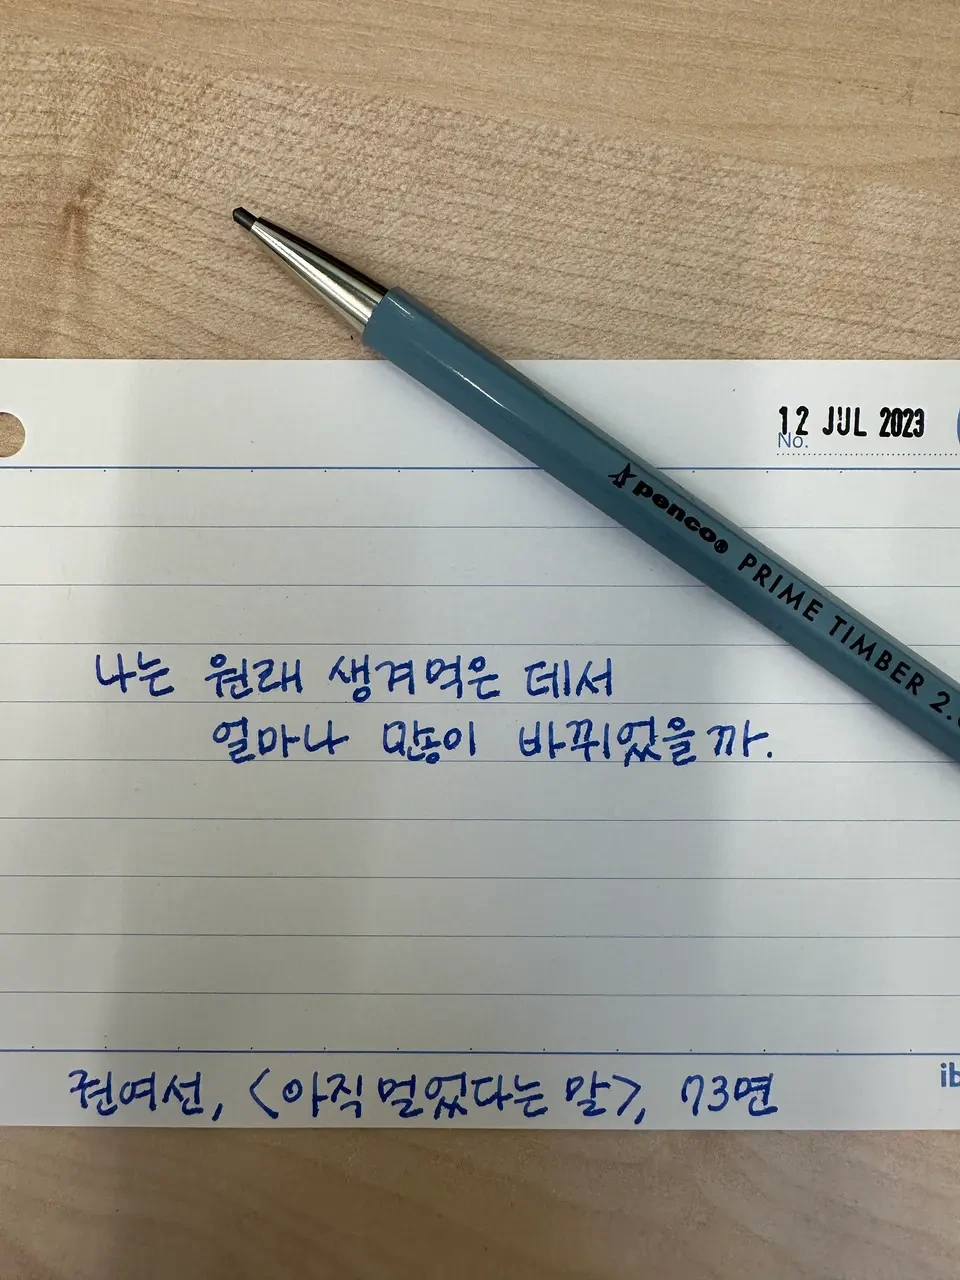 12 JUL 2023
No.
penco® PRIME TIMBER 2.0
나는 원래 생겨먹은 데서
얼마나 많이 바뀌었을까.
ib
권여선, <아직 멀었다는 말>, 73면